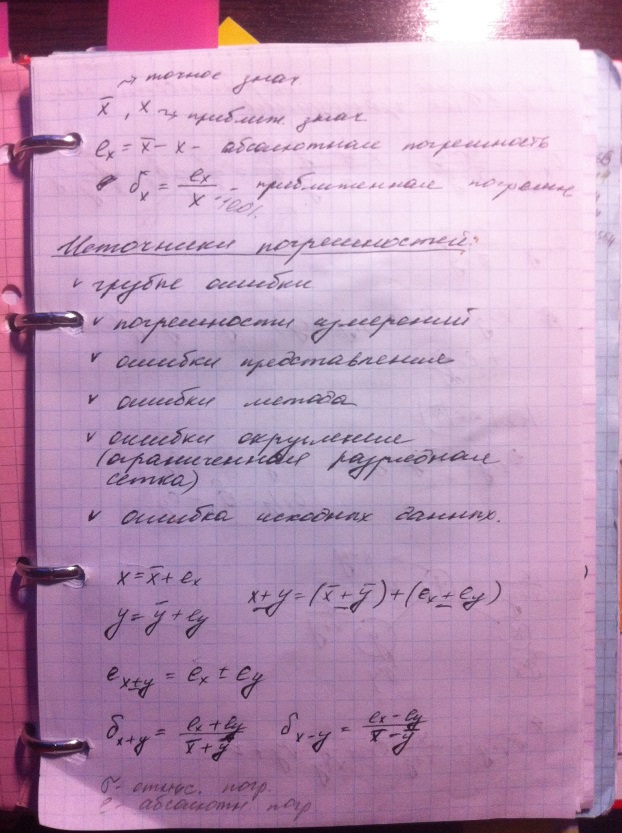 → точное знач
x̄, x → приближ. знач
eₓ = x̄ - x - абсолютная погрешность
δₓ = eₓ/x - приближенная погрешн
Источники погрешностей:
v грубые ошибки
v погрешности измерений
v ошибки представления
v ошибки метода
v ошибки округления
(ограниченная разрядная
сетка)
v ошибка исходных данных.
x = x̄ + eₓ
x ± y = (x̄ ± ȳ) + (eₓ ± e_y)
y = ȳ + e_y
e_{x±y} = eₓ ± e_y
δ_{x+y} = (eₓ + e_y)/(x̄ + ȳ) δ_{x-y} = (eₓ - e_y)/(x̄ - ȳ)
δ - относ. погр.
e - абсолютн погр